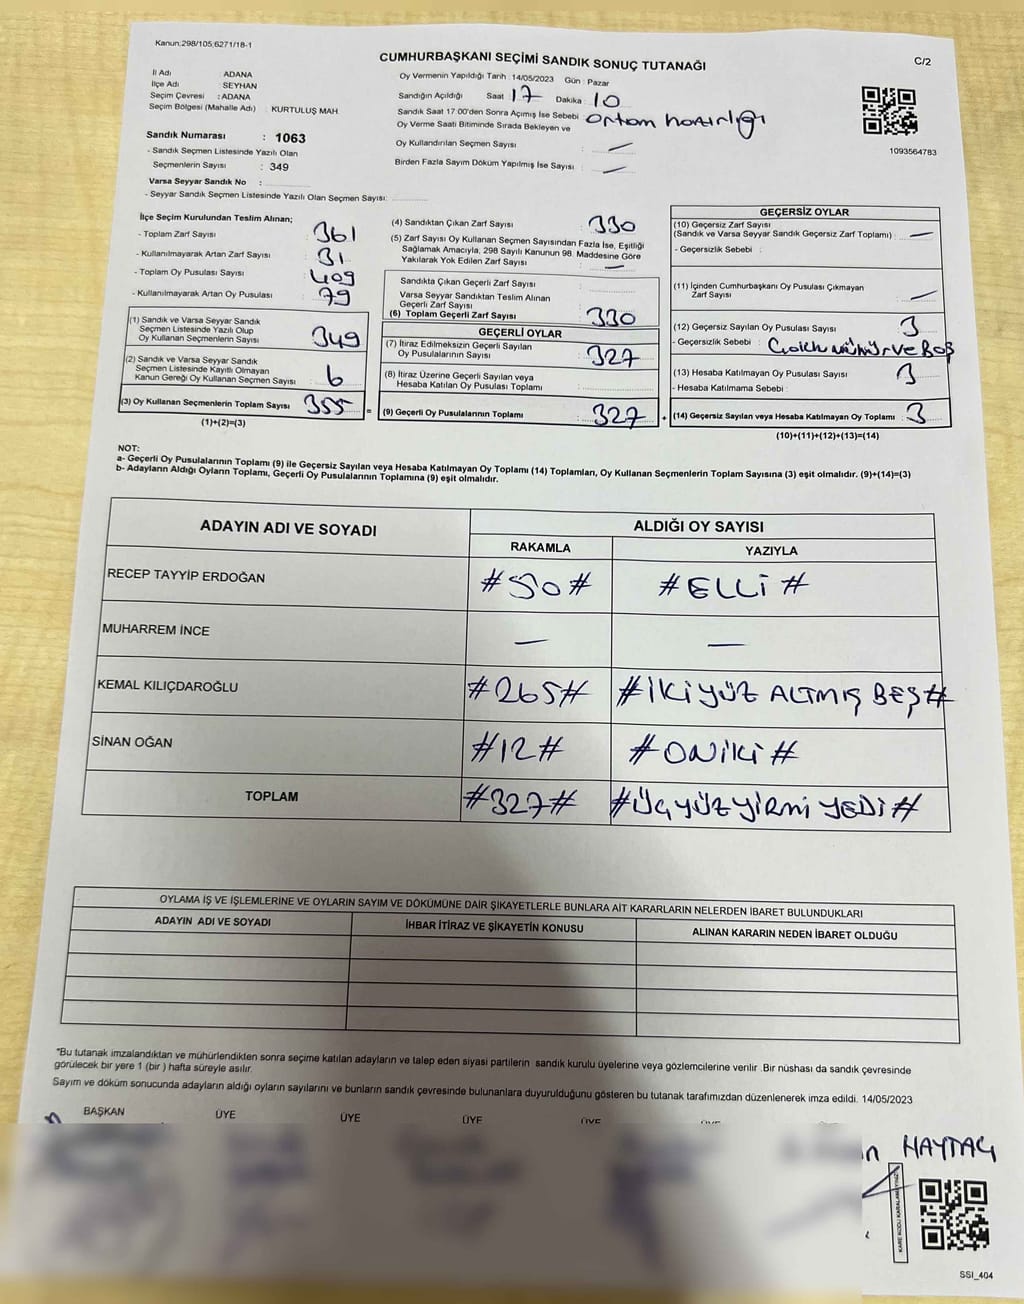 Kanun:298/105,6271/18-1
CUMHURBAŞKANI SEÇİMİ SANDIK SONUÇ TUTANAĞI
C/2
İl Adı : ADANA
İlçe Adı : SEYHAN
Seçim Çevresi : ADANA
Seçim Bölgesi (Mahalle Adı) : KURTULUŞ MAH.
Sandık Numarası : 1063
- Sandık Seçmen Listesinde Yazılı Olan
Seçmenlerin Sayısı : 349
Varsa Seyyar Sandık No :
- Seyyar Sandık Seçmen Listesinde Yazılı Olan Seçmen Sayısı:
Oy Vermenin Yapıldığı Tarih :14/05/2023 Gün : Pazar
Sandığın Açıldığı Saat 17 Dakika : 10
Sandık Saat 17:00'den Sonra Açımış İse Sebebi : Ortam hazırlığı
Oy Verme Saati Bitiminde Sırada Bekleyen ve
Oy Kullandırılan Seçmen Sayısı : —
Birden Fazla Sayım Döküm Yapılmış İse Sayısı : —
1093564783
İlçe Seçim Kurulundan Teslim Alınan;
- Toplam Zarf Sayısı : 361
- Kullanılmayarak Artan Zarf Sayısı : 31
- Toplam Oy Pusulası Sayısı : 409
- Kullanılmayarak Artan Oy Pusulası : 79
(1) Sandık ve Varsa Seyyar Sandık
Seçmen Listesinde Yazılı Olup
Oy Kullanan Seçmenlerin Sayısı : 349
(2) Sandık ve Varsa Seyyar Sandık
Seçmen Listesinde Kayıtlı Olmayan
Kanun Gereği Oy Kullanan Seçmen Sayısı : 6
(3) Oy Kullanan Seçmenlerin Toplam Sayısı : 355 =
(1)+(2)=(3)
(4) Sandıktan Çıkan Zarf Sayısı : 330
(5) Zarf Sayısı Oy Kullanan Seçmen Sayısından Fazla İse, Eşitliği
Sağlamak Amacıyla, 298 Sayılı Kanunun 98. Maddesine Göre
Yakılarak Yok Edilen Zarf Sayısı : —
Sandıkta Çıkan Geçerli Zarf Sayısı :
Varsa Seyyar Sandıktan Teslim Alınan
Geçerli Zarf Sayısı :
(6) Toplam Geçerli Zarf Sayısı : 330
GEÇERLİ OYLAR
(7) İtiraz Edilmeksizin Geçerli Sayılan
Oy Pusulalarının Sayısı : 327
(8) İtiraz Üzerine Geçerli Sayılan veya
Hesaba Katılan Oy Pusulası Toplamı :
(9) Geçerli Oy Pusulalarının Toplamı : 327 +
GEÇERSİZ OYLAR
(10) Geçersiz Zarf Sayısı
(Sandık ve Varsa Seyyar Sandık Geçersiz Zarf Toplamı) : —
- Geçersizlik Sebebi :
(11) İçinden Cumhurbaşkanı Oy Pusulası Çıkmayan
Zarf Sayısı : —
(12) Geçersiz Sayılan Oy Pusulası Sayısı : 3
- Geçersizlik Sebebi : mühür ve Boş
(13) Hesaba Katılmayan Oy Pusulası Sayısı : 3
- Hesaba Katılmama Sebebi :
(14) Geçersiz Sayılan veya Hesaba Katılmayan Oy Toplamı : 3
(10)+(11)+(12)+(13)=(14)
NOT:
a- Geçerli Oy Pusulalarının Toplamı (9) ile Geçersiz Sayılan veya Hesaba Katılmayan Oy Toplamı (14) Toplamları, Oy Kullanan Seçmenlerin Toplam Sayısına (3) eşit olmalıdır. (9)+(14)=(3)
b- Adayların Aldığı Oyların Toplamı, Geçerli Oy Pusulalarının Toplamına (9) eşit olmalıdır.
ADAYIN ADI VE SOYADI
ALDIĞI OY SAYISI
RAKAMLA YAZIYLA
RECEP TAYYİP ERDOĞAN #50# #ELLİ#
MUHARREM İNCE — —
KEMAL KILIÇDAROĞLU #265# #İKİYÜZ ALTMIŞ BEŞ#
SİNAN OĞAN #12# #ONİKİ#
TOPLAM #327# #ÜÇYÜZ YİRMİ YEDİ#
OYLAMA İŞ VE İŞLEMLERİNE VE OYLARIN SAYIM VE DÖKÜMÜNE DAİR ŞİKAYETLERLE BUNLARA AİT KARARLARIN NELERDEN İBARET BULUNDUKLARI
ADAYIN ADI VE SOYADI İHBAR İTİRAZ VE ŞİKAYETİN KONUSU ALINAN KARARIN NEDEN İBARET OLDUĞU
*Bu tutanak imzalandıktan ve mühürlendikten sonra seçime katılan adayların ve talep eden siyasi partilerin sandık kurulu üyelerine veya gözlemcilerine verilir .Bir nüshası da sandık çevresinde
görülecek bir yere 1 (bir ) hafta süreyle asılır.
Sayım ve döküm sonucunda adayların aldığı oyların sayılarını ve bunların sandık çevresinde bulunanlara duyurulduğunu gösteren bu tutanak tarafımızdan düzenlenerek imza edildi. 14/05/2023
BAŞKAN ÜYE ÜYE ÜYE ÜYE ÜYE
HAYTAÇ
SSI_404